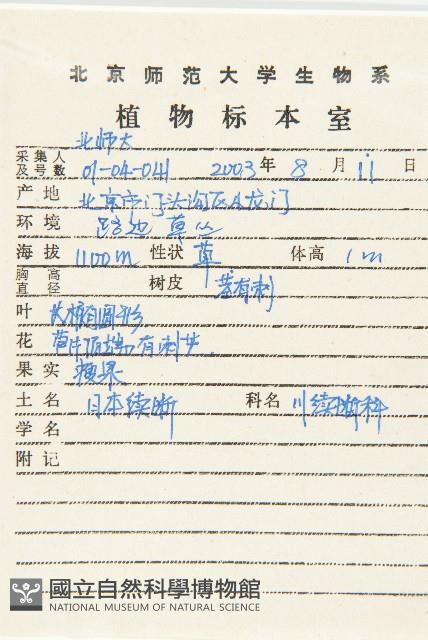 北京师范大学生物系
植物标本室
北师大
采集人及号数 01-04-041 2003年 8月 11日
产地 北京市门头沟区龙门
环境 路边 草丛
海拔 1100m 性状 草 体高 1m
胸高直径 树皮 茎有刺
叶 长椭圆形
花 苞片顶端有刺
果实 瘦果
土名 日本续断 科名 川续断科
学名
附记
國立自然科學博物館
NATIONAL MUSEUM OF NATURAL SCIENCE